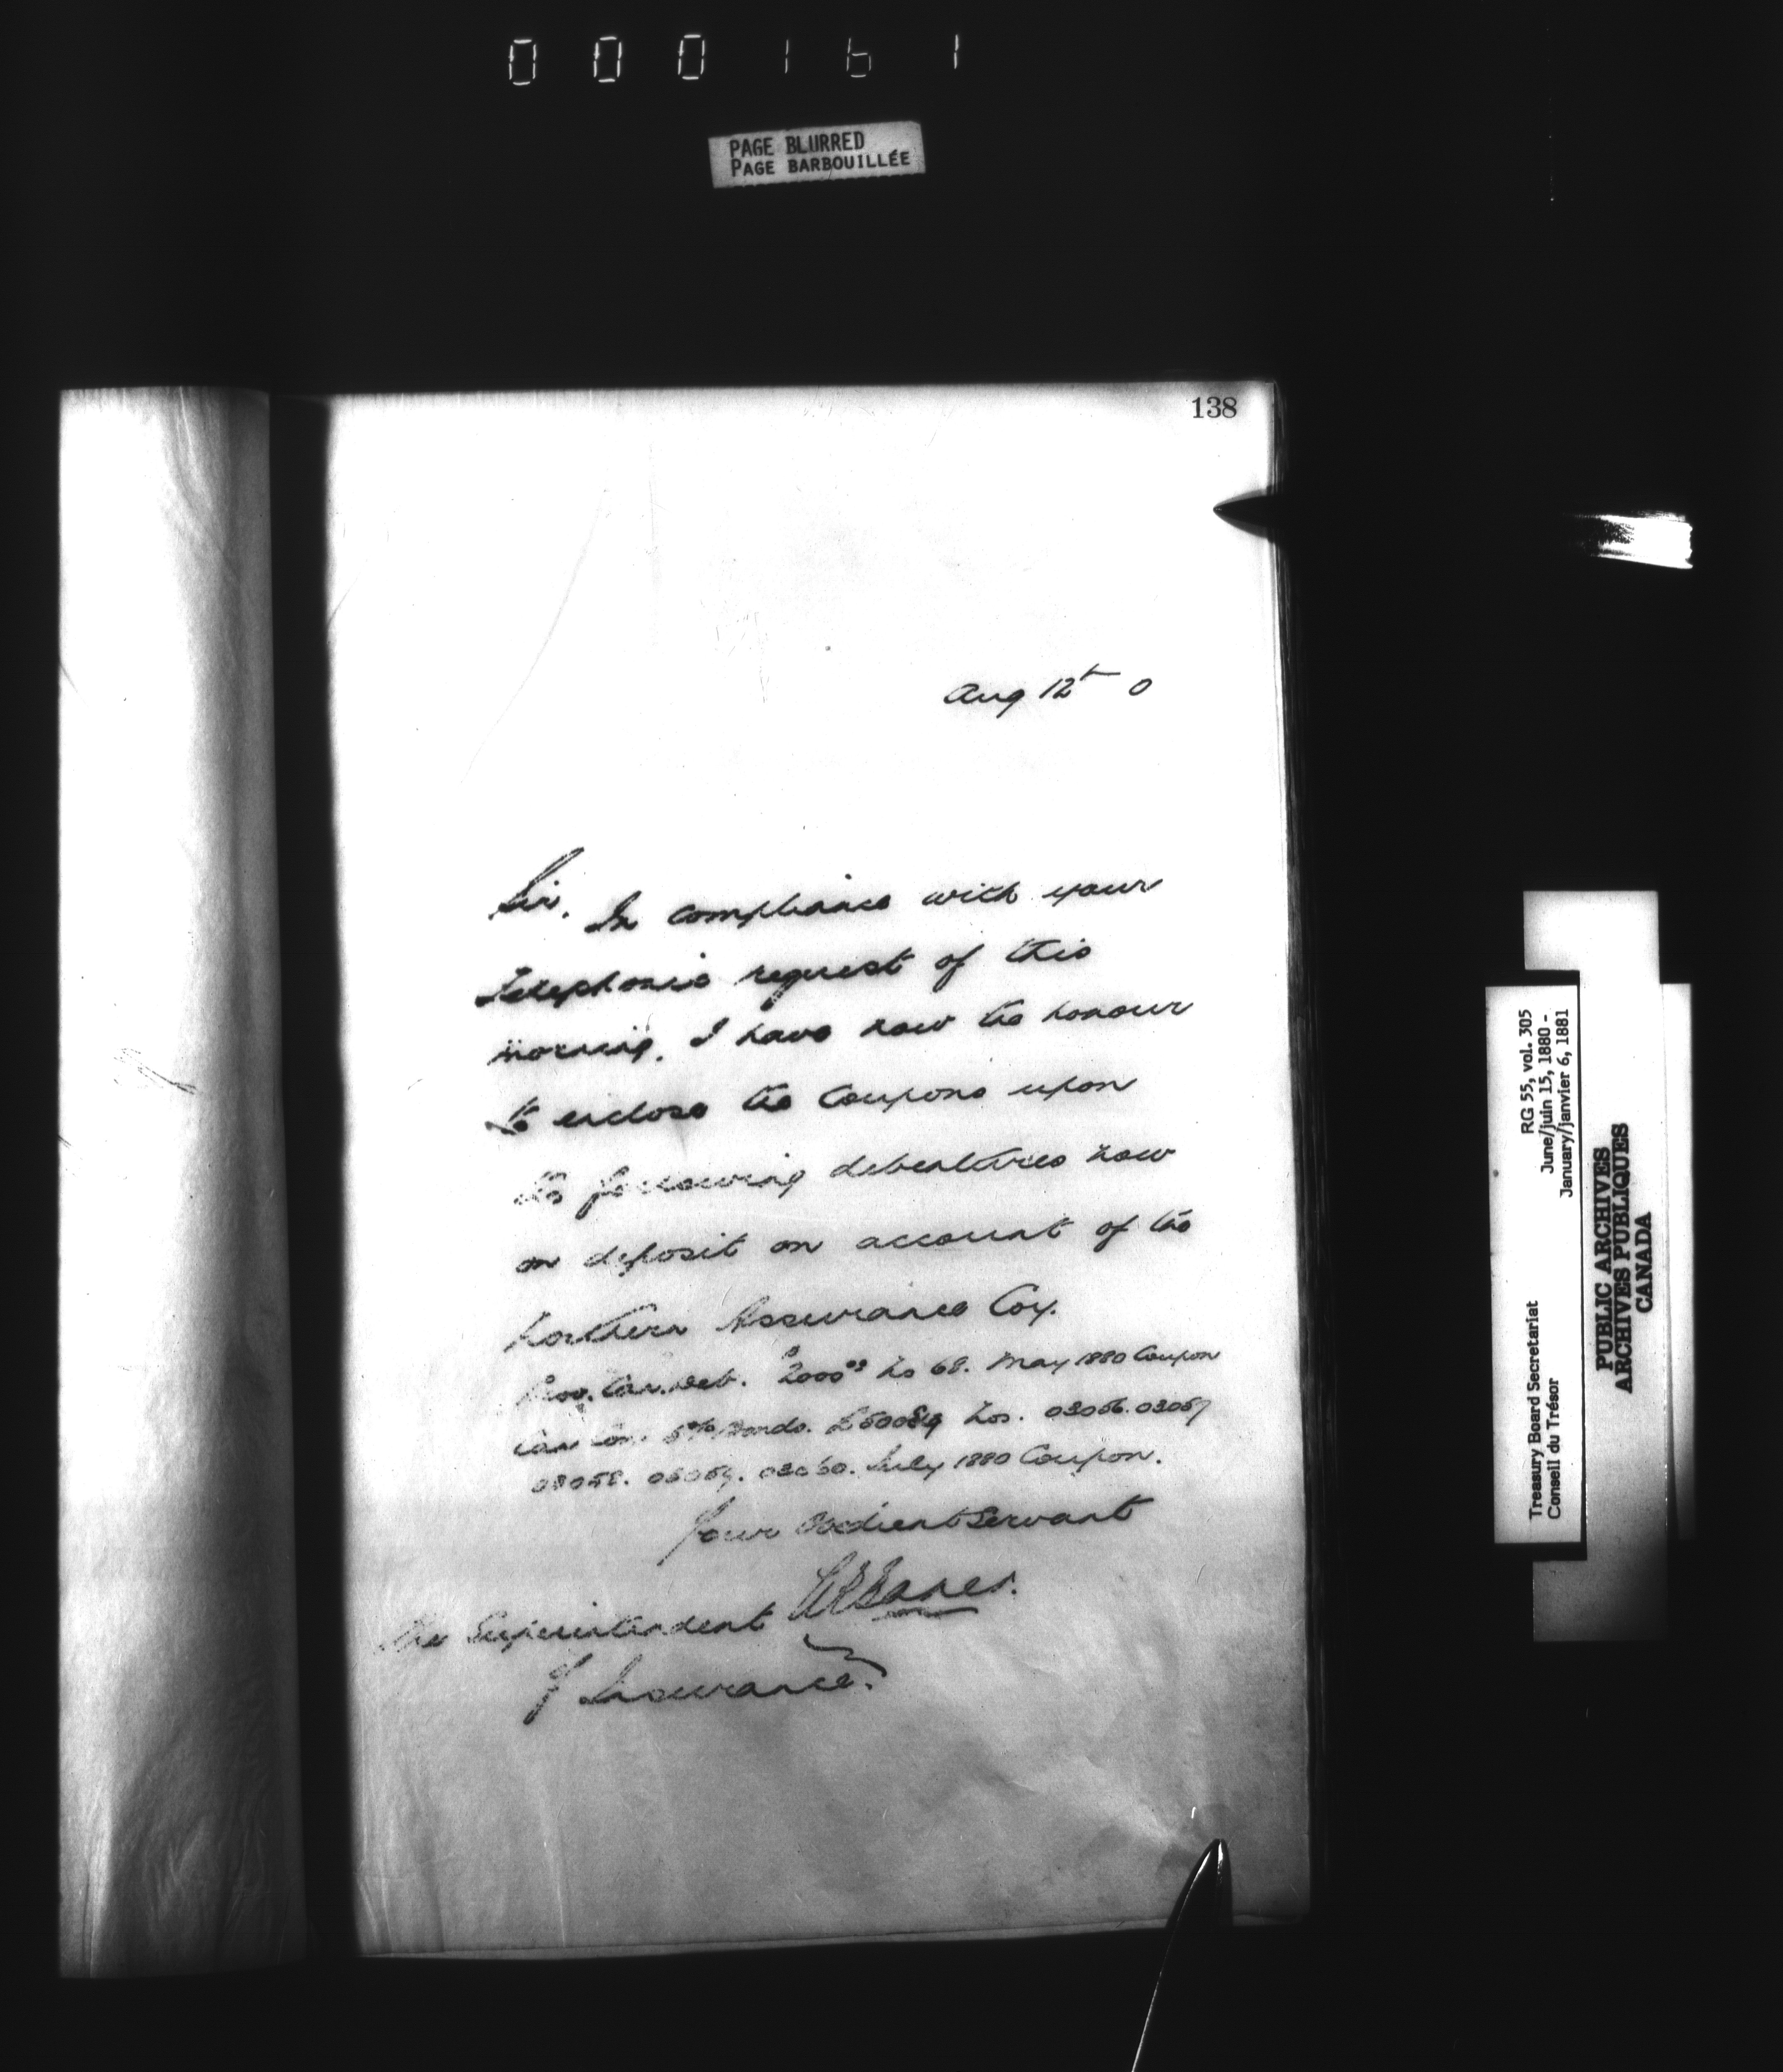 000161
PAGE BLURRED
PAGE BARBOUILLÉE
138
Aug 12th 0
Sir. In compliance with your
Telephonic request of this
morning. I have now the honour
to enclose the Coupons upon
the following debentures now
on deposit on account of the
Northern Assurance Coy.
Prov. Can. Deb. $2000.00 No 68. May 1880 Coupon
Can 5% Bonds. No. 03056. 03057
03058. 03059. 03060. July 1880 Coupon.
Your Obedient Servant
The Superintendent
of Insurance.
Treasury Board Secretariat RG 55, vol. 305
Conseil du Trésor June/juin 15, 1880 -
January/janvier 6, 1881
PUBLIC ARCHIVES
ARCHIVES PUBLIQUES
CANADA